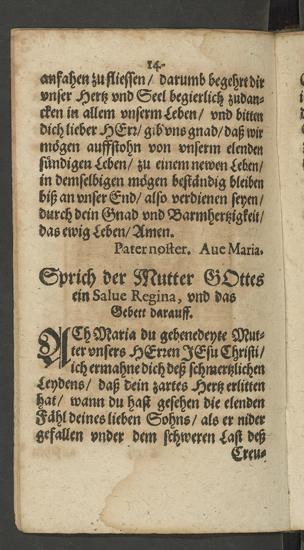 14.
anfahen zu fliessen / darumb begehrt dir
vnser Hertz vnd Seel begierlich zudan-
cken in allem vnserm Leben / vnd bitten
dich lieber HErr / gib vns gnad / daß wir
mögen auffstohn von vnserm elenden
sündigen Leben / zu einem newen Leben /
in demselbigen mögen beständig bleiben
biß an vnser End / also verdienen seyen /
durch dein Gnad vnd Barmhertzigkeit /
das ewig Leben / Amen.
Pater noster. Aue Maria.
Sprich der Mutter GOttes
ein Salue Regina, vnd das
Gebett darauff.
ACh Maria du gebenedeyte Mut-
ter vnsers HErren JEsu Christi /
ich ermahne dich deß schmertzlichen
Leydens / daß dein zartes Hertz erlitten
hat / wann du hast gesehen die elenden
Fähl deines lieben Sohns / als er nider
gefallen vnder dem schweren Last deß
Creu-